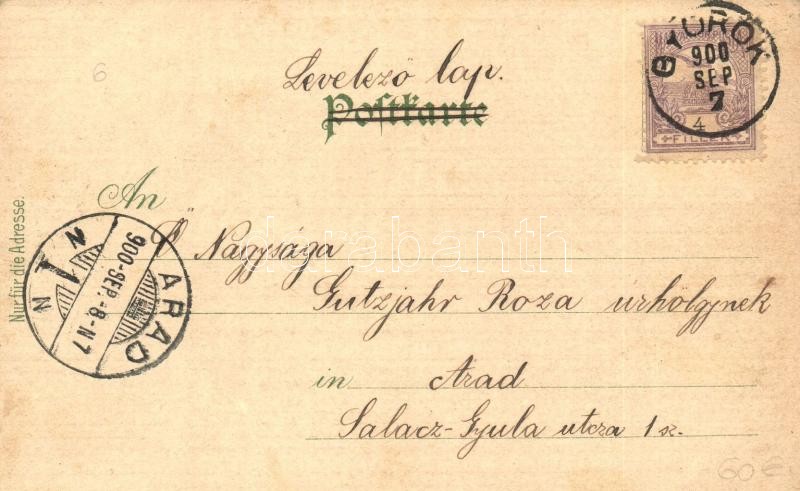 6
GYOROK
900
SEP
7
4
FILLÉR
Levelező lap.
Postkarte
An
Ő Nagysága
Gutzjahr Roza úrhölgynek
in Arad
Salacz-Gyula utcza 1 sz.
Nur für die Adresse.
ARAD
900-SEP.-8-N7
N 1 N
darabanth
60 €